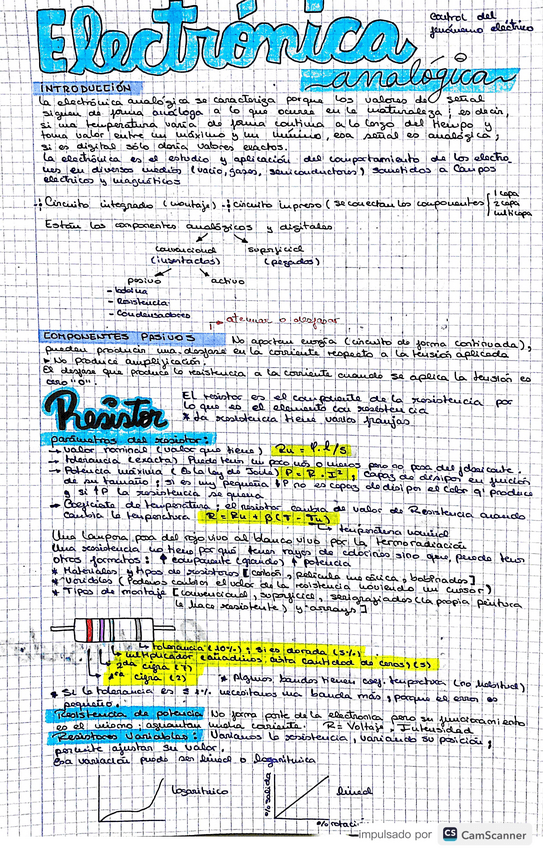 Electrónica
control del
fenómeno eléctrico
analógica
INTRODUCCIÓN
La electrónica analógica se caracteriza porque los valores de señal
siguen de forma análoga a lo que ocurre en la naturaleza; es decir,
si una temperatura varía de forma continua a lo largo del tiempo y
toma valor entre un máximo y un mínimo, esa señal es analógica;
si es digital sólo daría valores exactos.
La electrónica es el estudio y aplicación del comportamiento de los electro
nes en diversos medios (vacío, gases, semiconductores) sometidos a campos
eléctricos y magnéticos
Circuito integrado (montaje) circuito impreso (se conectan los componentes
1 capa
2 capa
multicapa
Están los componentes analógicos y digitales
convencional superficial
(insertados) (pegados)
pasivo activo
- bobina
- Resistencia
- Condensadores
atenuar o desfasar
COMPONENTES PASIVOS No aportan energía (circuito de forma continuada),
pueden producir un desfase en la corriente respecto a la tensión aplicada
* No produce amplificación.
El desfase que produce la resistencia a la corriente cuando se aplica la tensión es
cero "0".
Resistor
El resistor es el componente de la resistencia por
lo que es el elemento con resistencia
* La resistencia tiene varias franjas
parámetros del resistor:
→ Valor nominal (valor que tiene) Rn = ρ·l/S
→ tolerancia (exacta) Puede tener un poco más o menos pero no pasa del
→ Potencia máxima (es la ley de Joule) P = R·I², capaz de disipar en función
de su tamaño; si es muy pequeña ↓P no es capaz de disipar el calor q' produce
y si ↑P la resistencia se quema
→ Coeficiente de temperatura: el resistor cambia de valor de Resistencia cuando
cambia la temperatura R = Rn + β(T - Tn)
temperatura nominal
Una lámpara pasa del rojo vivo al blanco vivo por la termoradiación
Una resistencia no tiene por qué tener rayas de colorines sino que, puede tener
otros formatos: ↑ componente (grande) ↑ potencia
* Materiales y tipos de resistores [carbón, película metálica, bobinados]
* Variables (Podemos cambiar el valor de la resistencia moviendo un cursor)
* Tipos de montaje [convencional, superficial, serigrafiados (la propia pintura
la hace resistente) y "arrays"]
tolerancia (10%); si es dorada (5%)
multiplicador (añadimos esta cantidad de ceros) (3)
2da cifra (7)
1ra cifra (2)
* Algunas bandas tienen coef. temperatura (no habitual)
* Si la tolerancia es ± 1% necesitamos una banda más, porque el error es
pequeño.
Resistencia de potencia No forma parte de la electrónica pero su funcionamiento
es el mismo; aguantan mucha corriente. R = Voltaje, Intensidad
Resistores Variables: Variamos la resistencia, variando su posición,
permite ajustar su valor.
Esa variación puede ser lineal o logarítmica
logarítmico
% salida
lineal
% rotaci
impulsado por CS CamScanner